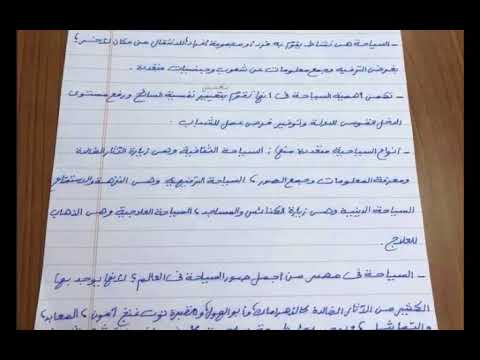 - السياحة هى نشاط يقوم به فرد أو مجموعة أفراد للانتقال من مكان لآخر ؛
بغرض الترفيه وجمع معلومات عن شعوب وجنسيات متعددة .
- تكمن أهمية السياحة فى أنها تقوم بتغيير نفسية السائح ورفع مستوى
الدخل القومى للدولة وتوفير فرص عمل للشباب .
- أنواع السياحة متعددة منها : السياحة الثقافية وهى زيارة الآثار الخالدة
ومعرفة المعلومات وجمع الصور ، السياحة الترفيهية وهى النزهة والاستمتاع
السياحة الدينية وهى زيارة الكنائس والمساجد ، السياحة العلاجية وهى الذهاب
للعلاج .
- السياحة فى مصر من أجمل صور السياحة فى العالم ؛ لأنها يوجد بها
الكثير من الآثار الخالدة كالأهرامات وأبو الهول ومقبرة توت عنخ آمون ، المعابد ،